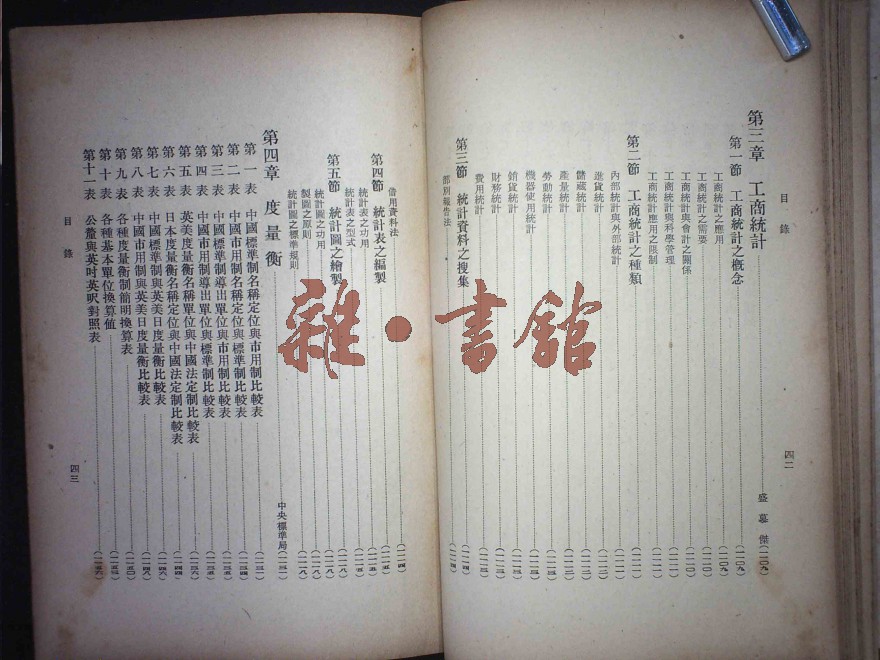 目錄
四二
第三章 工商統計 盛慕傑(一一〇九)
第一節 工商統計之概念(一一〇九)
工商統計之應用(一一〇九)
工商統計之需要(一一一〇)
工商統計與會計之關係(一一一〇)
工商統計與科學管理
工商統計應用之限制
第二節 工商統計之種類
內部統計與外部統計
進貨統計
儲藏統計
產量統計
勞動統計
機器使用統計
銷貨統計
財務統計
費用統計
第三節 統計資料之搜集
部別報告法
借用資料法
第四節 統計表之編製
統計表之功用
統計表之型式
第五節 統計圖之繪製
統計圖之功用
製圖之原則
統計圖之標準規則
第四章 度量衡 中央標準局
第一表 中國標準制名稱定位與市用制比較表
第二表 中國市用制名稱定位與標準制比較表
第三表 中國標準制導出單位與市用制比較表
第四表 中國市用制導出單位與標準制比較表
第五表 英美度量衡名稱單位與中國法定制比較表
第六表 日本度量衡名稱定位與中國法定制比較表
第七表 中國標準制與英美日度量衡比較表
第八表 中國市用制與英美日度量衡比較表
第九表 各種度量衡制簡明換算表
第十表 各種基本單位換算值
第十一表 公釐與英吋英呎對照表
目錄
四三
雜·書館